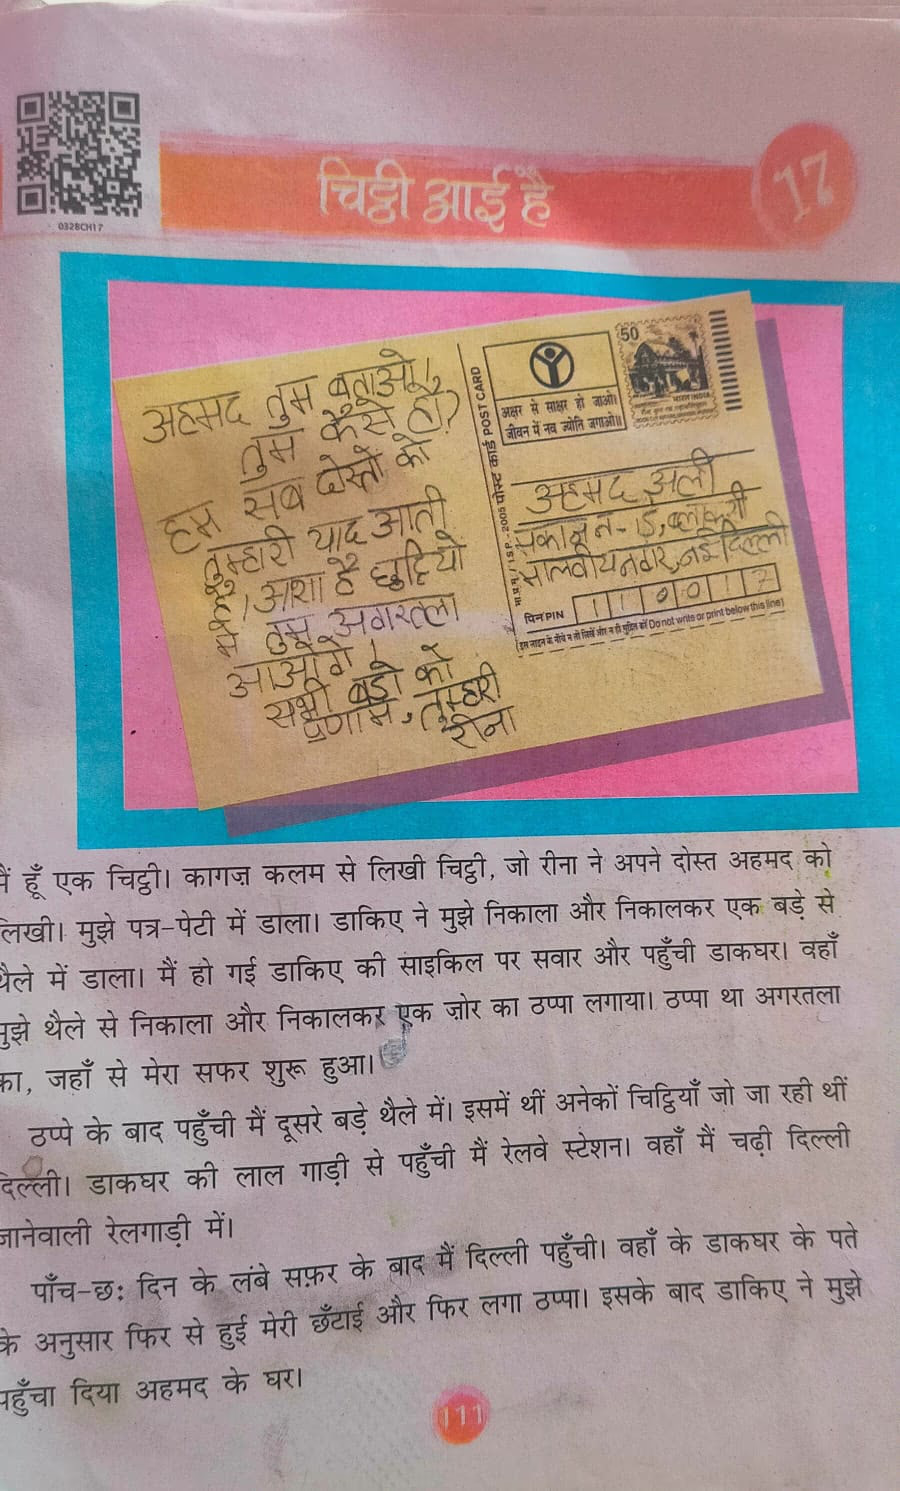 0328CH17
चिट्ठी आई है
17
अहमद तुम बताओ।
तुम कैसे हो?
हम सब दोस्तों को
तुम्हारी याद आती
है। आशा है छुट्टियों
में तुम अगरतला
आओगे।
सभी बड़ो को
प्रणाम, तुम्हारी
रीना
पोस्ट कार्ड POST CARD
अक्षर से साक्षर हो जाओ।
जीवन में नव ज्योति जगाओ॥
50
भारत INDIA
अहमद अली
मकान न-15, ब्लाक सी
मालवीय नगर, नई दिल्ली
पिन PIN 110017
(इस लाइन के नीचे न तो लिखें और न ही मुद्रित करें Do not write or print below this line)
मैं हूँ एक चिट्ठी। कागज़ कलम से लिखी चिट्ठी, जो रीना ने अपने दोस्त अहमद को
लिखी। मुझे पत्र-पेटी में डाला। डाकिए ने मुझे निकाला और निकालकर एक बड़े से
थैले में डाला। मैं हो गई डाकिए की साइकिल पर सवार और पहुँची डाकघर। वहाँ
मुझे थैले से निकाला और निकालकर एक ज़ोर का ठप्पा लगाया। ठप्पा था अगरतला
का, जहाँ से मेरा सफर शुरू हुआ।
ठप्पे के बाद पहुँची मैं दूसरे बड़े थैले में। इसमें थीं अनेकों चिट्ठियाँ जो जा रही थीं
दिल्ली। डाकघर की लाल गाड़ी से पहुँची मैं रेलवे स्टेशन। वहाँ मैं चढ़ी दिल्ली
जानेवाली रेलगाड़ी में।
पाँच-छः दिन के लंबे सफ़र के बाद मैं दिल्ली पहुँची। वहाँ के डाकघर के पते
के अनुसार फिर से हुई मेरी छँटाई और फिर लगा ठप्पा। इसके बाद डाकिए ने मुझे
पहुँचा दिया अहमद के घर।
111